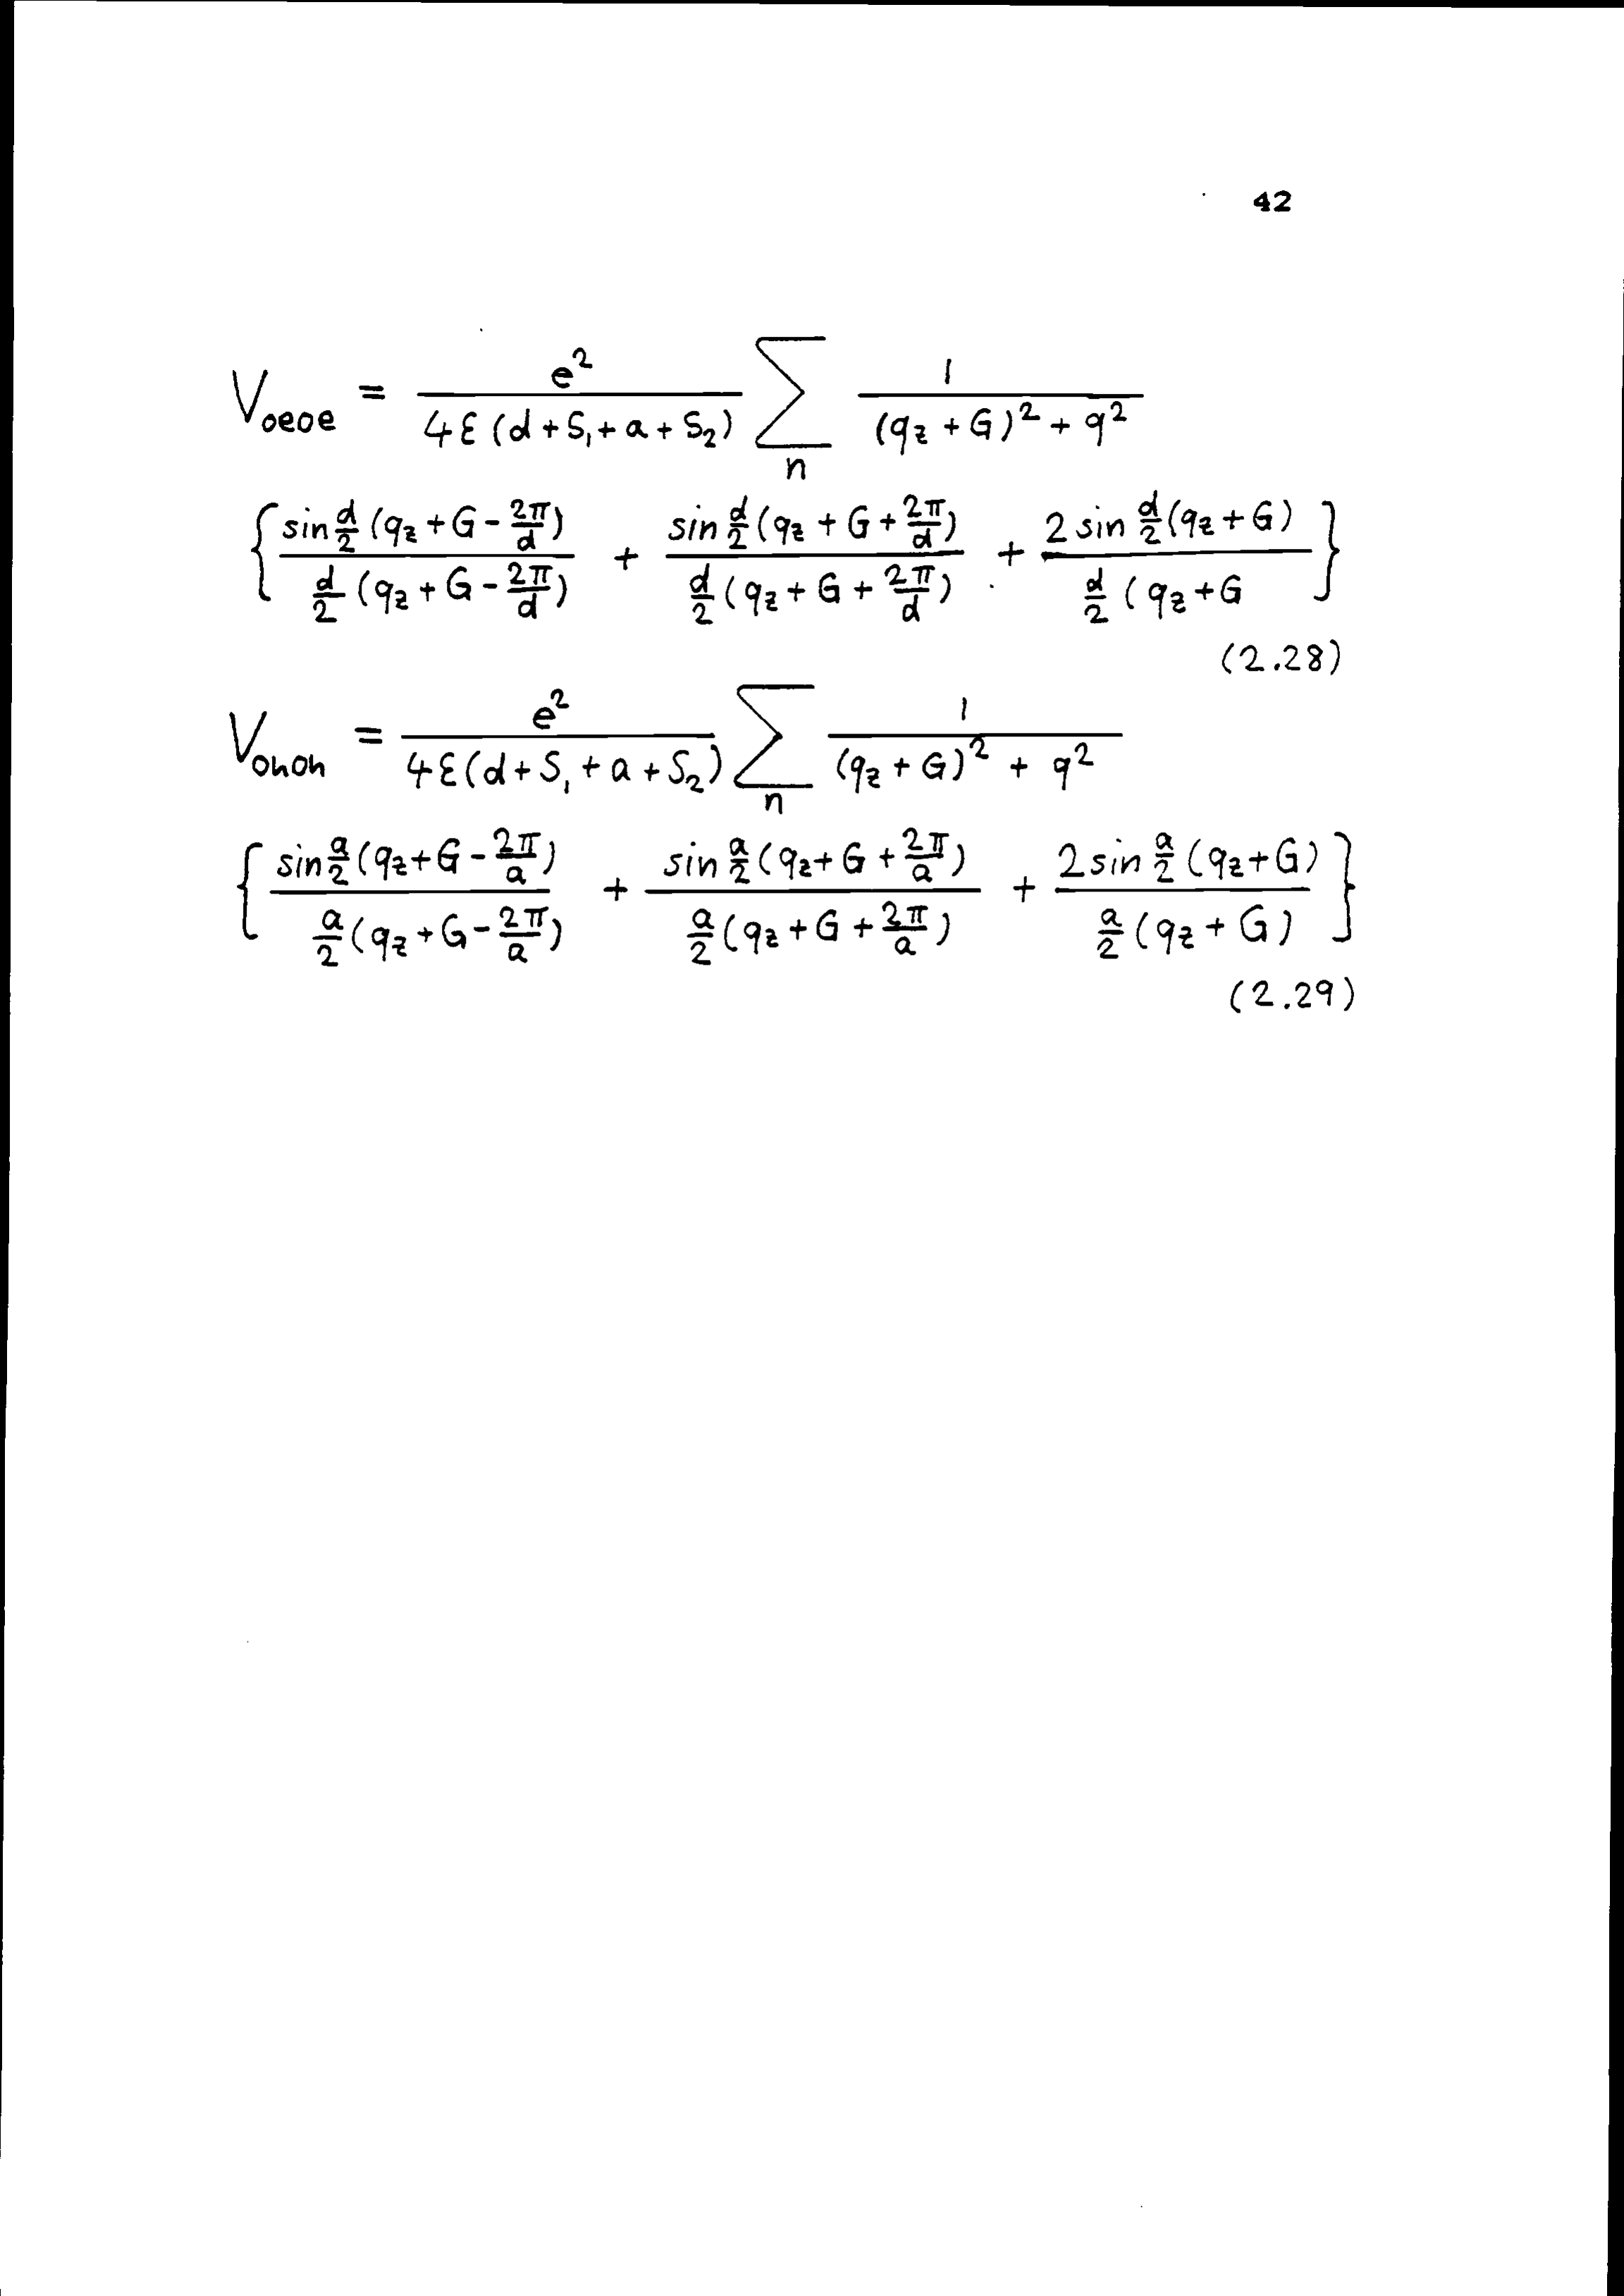 42
V_{oeoe} = \frac{e^2}{4ε(d+S_1+a+S_2)} \sum_n \frac{1}{(q_z+G)^2+q^2}
\left\{ \frac{\sin\frac{d}{2}(q_z+G-\frac{2π}{d})}{\frac{d}{2}(q_z+G-\frac{2π}{d})} + \frac{\sin\frac{d}{2}(q_z+G+\frac{2π}{d})}{\frac{d}{2}(q_z+G+\frac{2π}{d})} + \frac{2\sin\frac{d}{2}(q_z+G)}{\frac{d}{2}(q_z+G} \right\}
(2.28)
V_{ohoh} = \frac{e^2}{4ε(d+S_1+a+S_2)} \sum_n \frac{1}{(q_z+G)^2+q^2}
\left\{ \frac{\sin\frac{a}{2}(q_z+G-\frac{2π}{a})}{\frac{a}{2}(q_z+G-\frac{2π}{a})} + \frac{\sin\frac{a}{2}(q_z+G+\frac{2π}{a})}{\frac{a}{2}(q_z+G+\frac{2π}{a})} + \frac{2\sin\frac{a}{2}(q_z+G)}{\frac{a}{2}(q_z+G)} \right\}
(2.29)